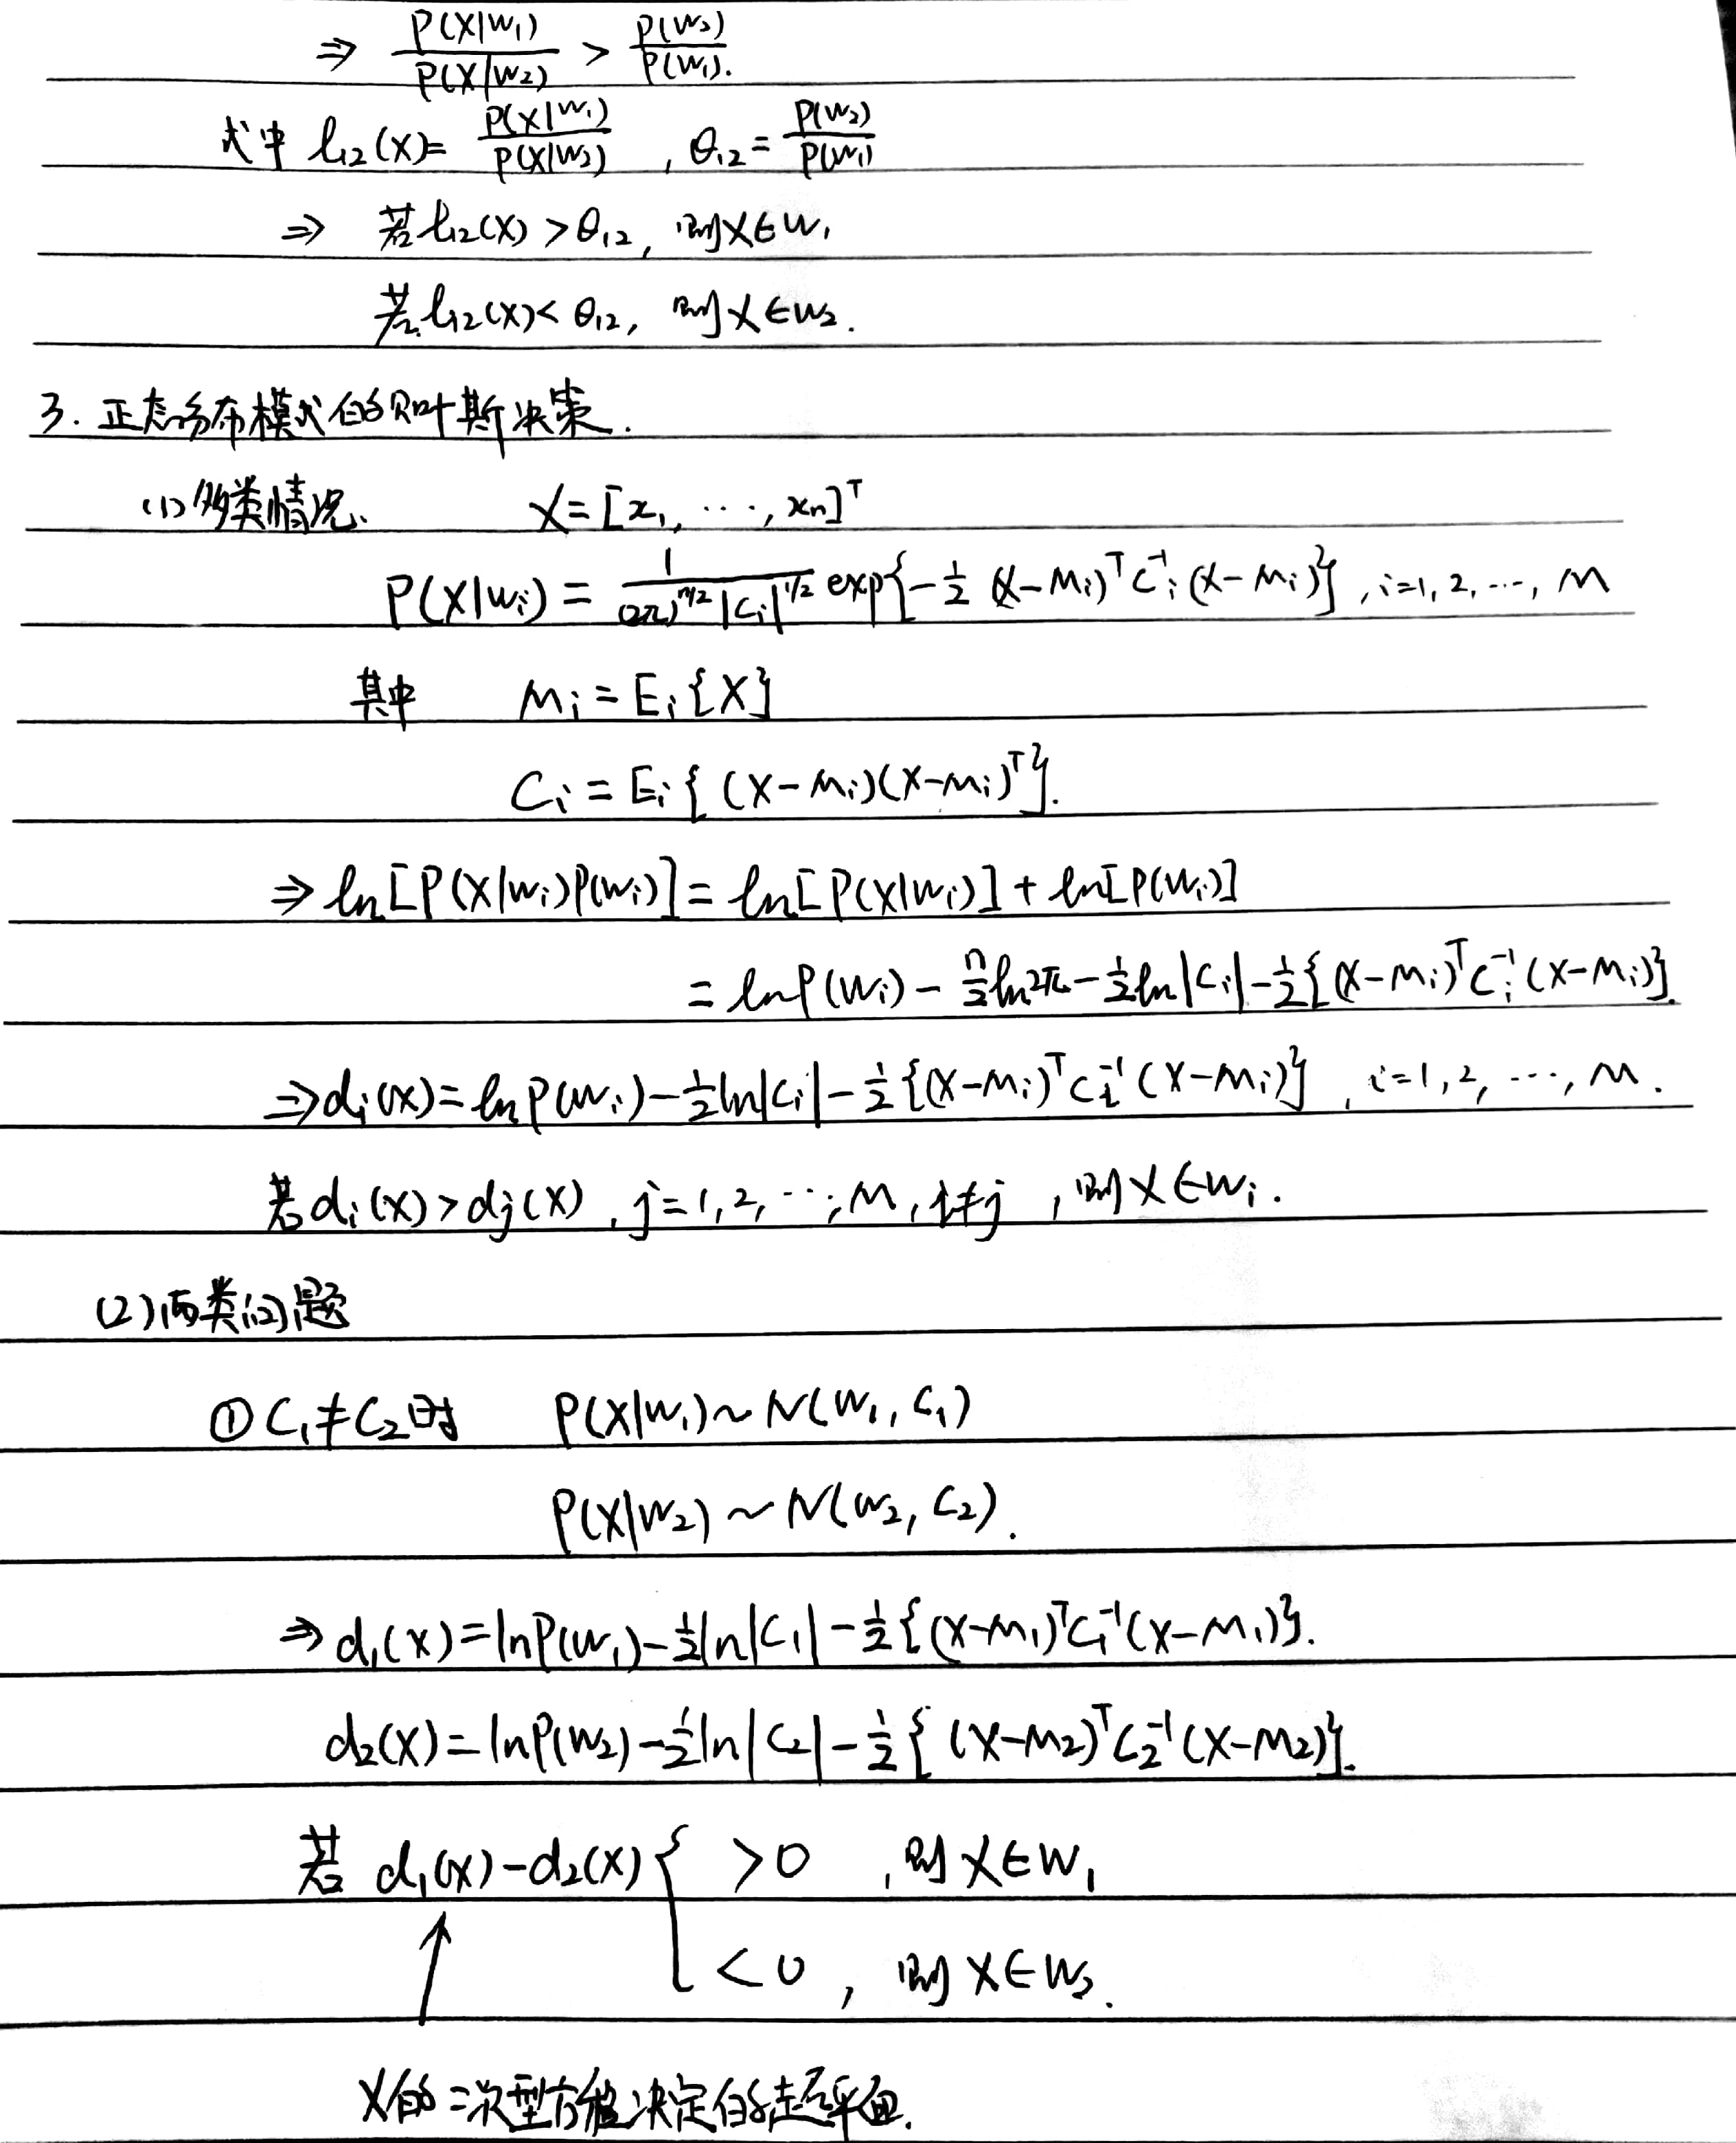 ⇒ P(X|w₁)/P(X|w₂) > P(w₂)/P(w₁).
式中 l₁₂(X)= P(X|w₁)/P(X|w₂) , θ₁₂= P(w₂)/P(w₁)
⇒ 若l₁₂(X)>θ₁₂, 则X∈w₁
若l₁₂(X)<θ₁₂, 则X∈w₂.
3. 正态分布模式的贝叶斯决策.
(1) 多类情况 X=[x₁, ⋯, xₙ]ᵀ
P(X|wᵢ) = 1/((2π)^{n/2}|Cᵢ|^{1/2}) exp{-½ (X-Mᵢ)ᵀCᵢ⁻¹(X-Mᵢ)} , i=1, 2, ⋯, M
其中 Mᵢ = Eᵢ{X}
Cᵢ = Eᵢ{(X-Mᵢ)(X-Mᵢ)ᵀ}.
⇒ ln[P(X|wᵢ)P(wᵢ)] = ln[P(X|wᵢ)] + ln[P(wᵢ)]
= lnP(wᵢ) - n/2 ln2π - ½ln|Cᵢ| - ½{(X-Mᵢ)ᵀCᵢ⁻¹(X-Mᵢ)}.
⇒ dᵢ(X) = lnP(wᵢ) - ½ln|Cᵢ| - ½{(X-Mᵢ)ᵀCᵢ⁻¹(X-Mᵢ)} , i=1, 2, ⋯, M.
若dᵢ(X)>dⱼ(X) , j=1, 2, ⋯, M, i≠j , 则X∈wᵢ.
(2) 两类问题
① C₁≠C₂时 P(X|w₁)~N(w₁, C₁)
P(X|w₂)~N(w₂, C₂).
⇒ d₁(X)=lnP(w₁)-½ln|C₁|-½{(X-M₁)ᵀC₁⁻¹(X-M₁)}.
d₂(X)=lnP(w₂)-½ln|C₂|-½{(X-M₂)ᵀC₂⁻¹(X-M₂)}.
若 d₁(X)-d₂(X) { >0 , 则X∈w₁
<0 , 则X∈w₂.
↑
X的二次型方程决定的超平面.